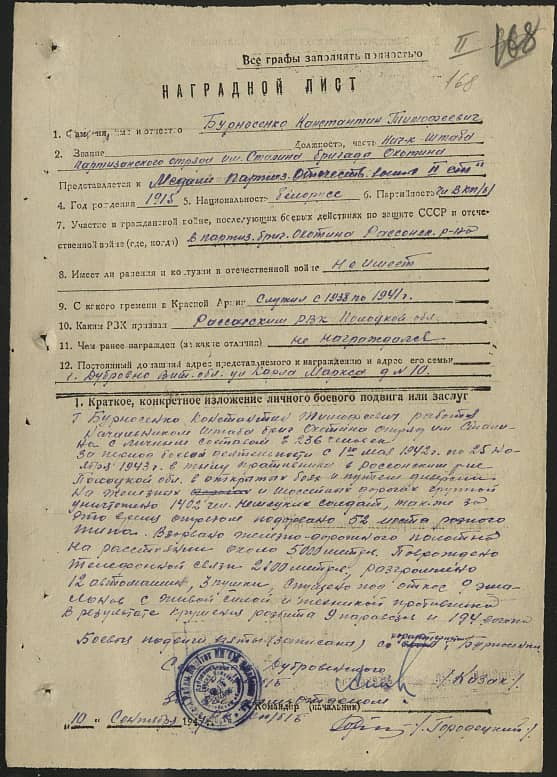 II 168
168
Все графы заполнять полностью
НАГРАДНОЙ ЛИСТ
1. Фамилия, имя и отчество Бурносенко Константин Тимофеевич
2. Звание Должность, часть Нач-к штаба
партизанского отряда им. Сталина бригада Охотина
Представляется к Медали Партиз. Отечеств. войны II ст"
4. Год рождения 1915 5. Национальность белорус 6. Партийность чл ВКП/б/
7. Участие в гражданской войне, последующих боевых действиях по защите СССР и отече-
ственной войне (где, когда) в партиз. бриг. Охотина Россонск. р-на
8. Имеет ли ранения и контузии в отечественной войне Не имеет
9. С какого времени в Красной Армии Служил с 1938 по 1941 г.
10. Каким РЗК призван РВК Полоцкой обл.
11. Чем ранее награжден (за какие отличия) не награждался
12. Постоянный домашний адрес представляемого к награждению и адрес его семьи
г. Дубровно Вит. обл. ул Карла Маркса д № 10.
I. Краткое, конкретное изложение личного боевого подвига или заслуг
Т Бурносенко Константин Тимофеевич работая
начальником штаба бриг Охотина отряд им Стали-
на с личным составом в 236 человек
За период боевой деятельности с 1го мая 1942г. по 25 но-
ября 1943г. в тылу противника в Россонском р-не
Полоцкой обл. в открытых боях и путем диверсии
на железных и шоссейных дорогах группой
уничтожено 1402 чел. немецких солдат, также за
это время отрядом подорвано 52 моста разного
типа. Взорвано железно-дорожного полотна
на расстоянии около 5000 метр. Повреждено
телефонной связи 2100 метров, разгромлено
12 автомашин, 3 пушки, спущено под откос 9 эша-
лонов с живой силой и техникой противника
В результате крушения разбито 9 паровозов и 194 вагона
Боевые подвиги взяты (записаны) со т. Бурносенко
Дубровенского
/Козак/
Командир (начальник)
10 Сентября
/Городецкий/